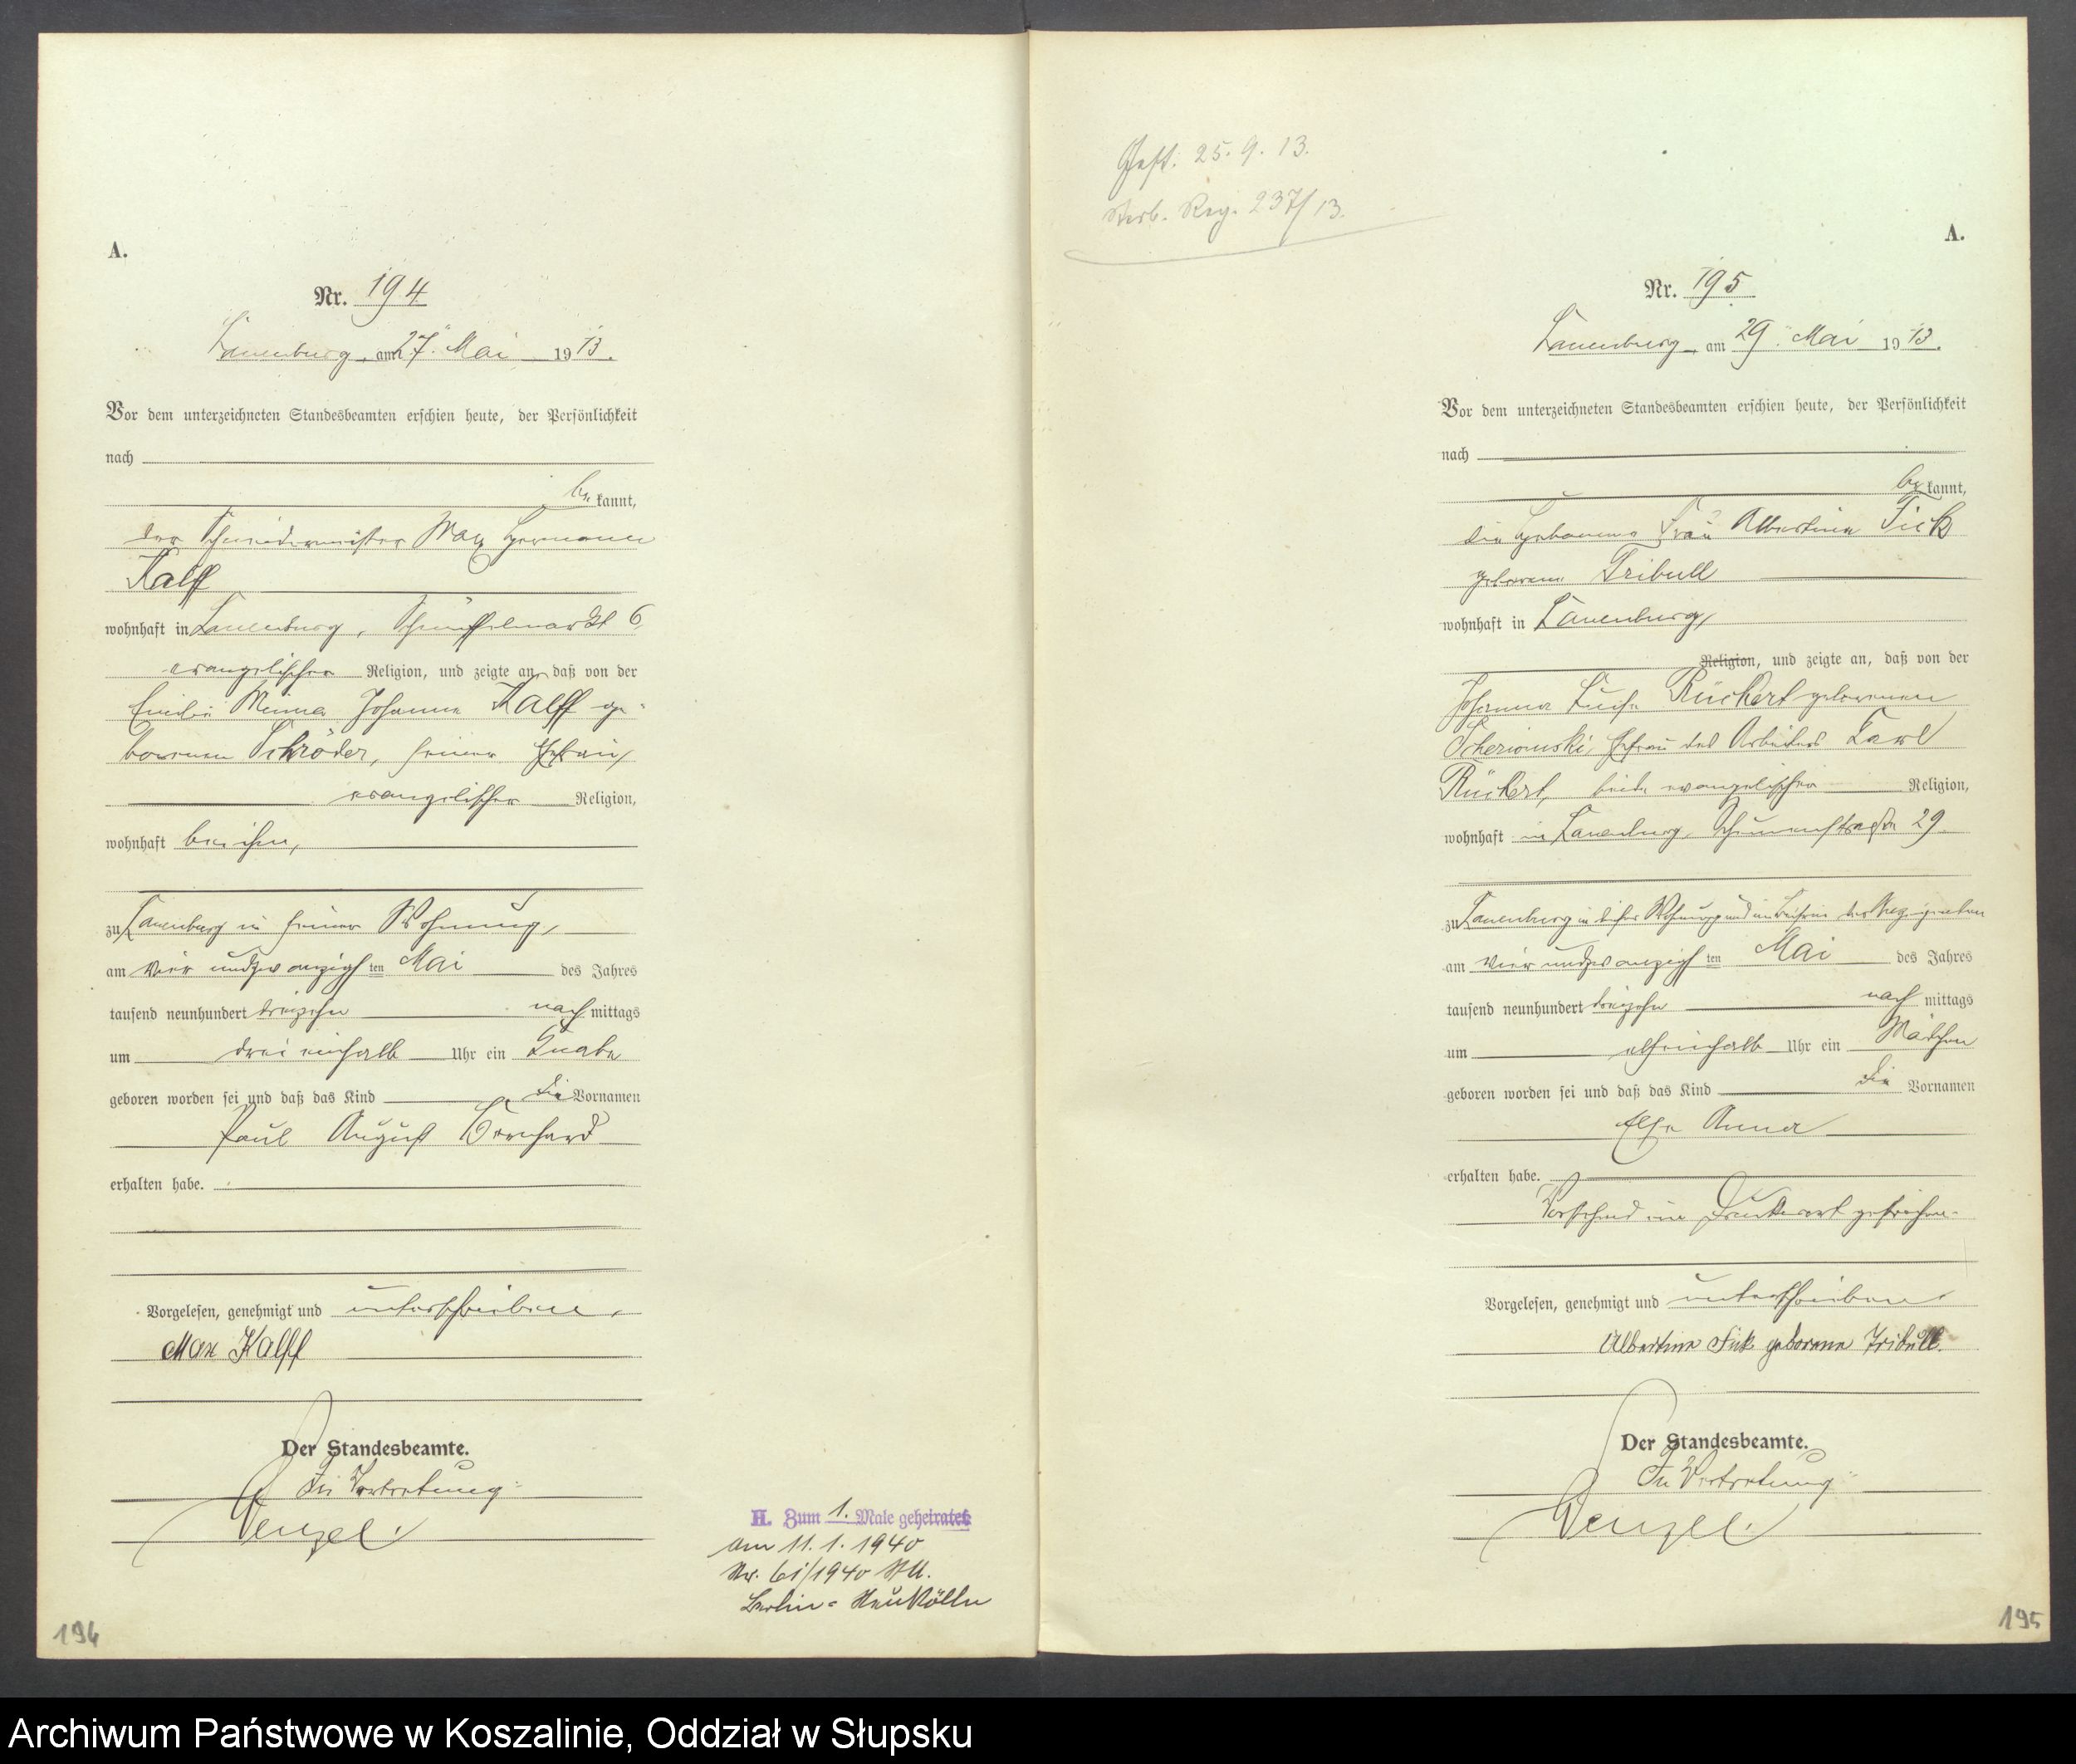 A.
Nr. 194
Lauenburg, am 27. Mai 1913.
Vor dem unterzeichneten Standesbeamten erschien heute, der Persönlichkeit
nach
be kannt,
der Schneidermeister Max Hermann
Kalff
wohnhaft in Lauenburg, 6,
evangelischer Religion, und zeigte an, daß von der
Emilie Minna Johanna Kalff ge-
borenen Schröder, seiner Ehefrau,
evangelischer Religion,
wohnhaft bei ihm,
zu Lauenburg in seiner Wohnung,
am vier undzwanzigsten Mai des Jahres
tausend neunhundert dreizehn nachmittags
um drei einhalb Uhr ein Knabe
geboren worden sei und daß das Kind die Vornamen
Paul August Bernhard
erhalten habe.
Vorgelesen, genehmigt und unterschrieben.
Max Kalff
Der Standesbeamte.
In Vertretung:
Wenzel.
H. Zum 1. Male geheiratet
am 11.1.1940
Nr. 61/1940 StA.
Berlin-Neukölln
194
Gest. 25.9.13.
Sterb. Reg. 237/13.
A.
Nr. 195
Lauenburg, am 29. Mai 1913.
Vor dem unterzeichneten Standesbeamten erschien heute, der Persönlichkeit
nach
be kannt,
die Hebamme Frau Albertine Fick
geborene Tribull
wohnhaft in Lauenburg,
Religion, und zeigte an, daß von der
Johanna Luise Rückert geborenen
Ehefrau des Arbeiters Karl
Rückert, beide evangelischer Religion,
wohnhaft in Lauenburg, 29
zu Lauenburg in dieser Wohnung und im Beisein der Anzeigenden
am vier undzwanzigsten Mai des Jahres
tausend neunhundert dreizehn nachmittags
um elf einhalb Uhr ein Mädchen
geboren worden sei und daß das Kind die Vornamen
Else Anna
erhalten habe.
Vorstehend ein Druckwort gestrichen.
Vorgelesen, genehmigt und unterschrieben
Albertine Fick geborene Tribull.
Der Standesbeamte.
In Vertretung:
Wenzel.
195
Archiwum Państwowe w Koszalinie, Oddział w Słupsku